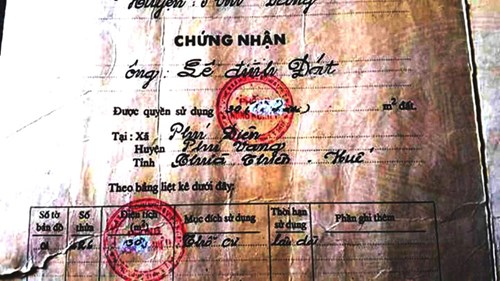 Huyện:
CHỨNG NHẬN
ông: Lê đình Đót
Được quyền sử dụng m² đất.
Tại: Xã Phú Diên
Huyện Phú Vang
Tỉnh Thừa Thiên - Huế
Theo bảng liệt kê dưới đây:
Số tờ bản đồ Số thửa Diện tích (m²) Mục đích sử dụng Thời hạn sử dụng Phần ghi thêm
01 Thổ cư lâu dài